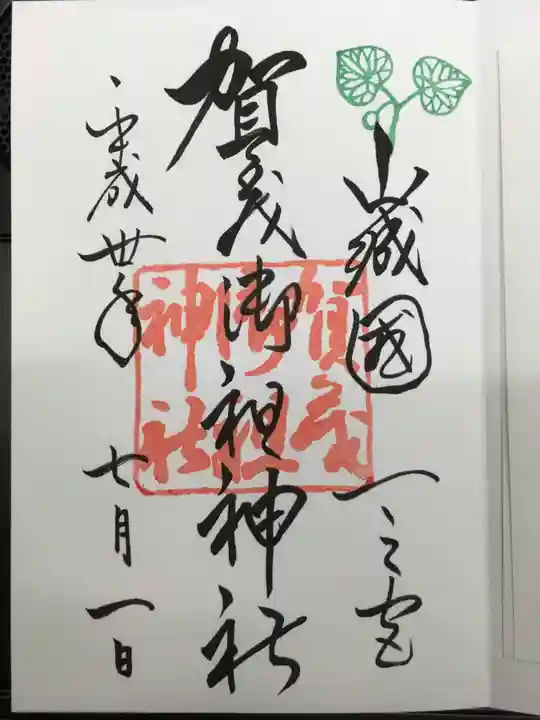 山城國一之宮
賀茂御祖神社
賀茂
御祖
神社
平成卅年七月一日